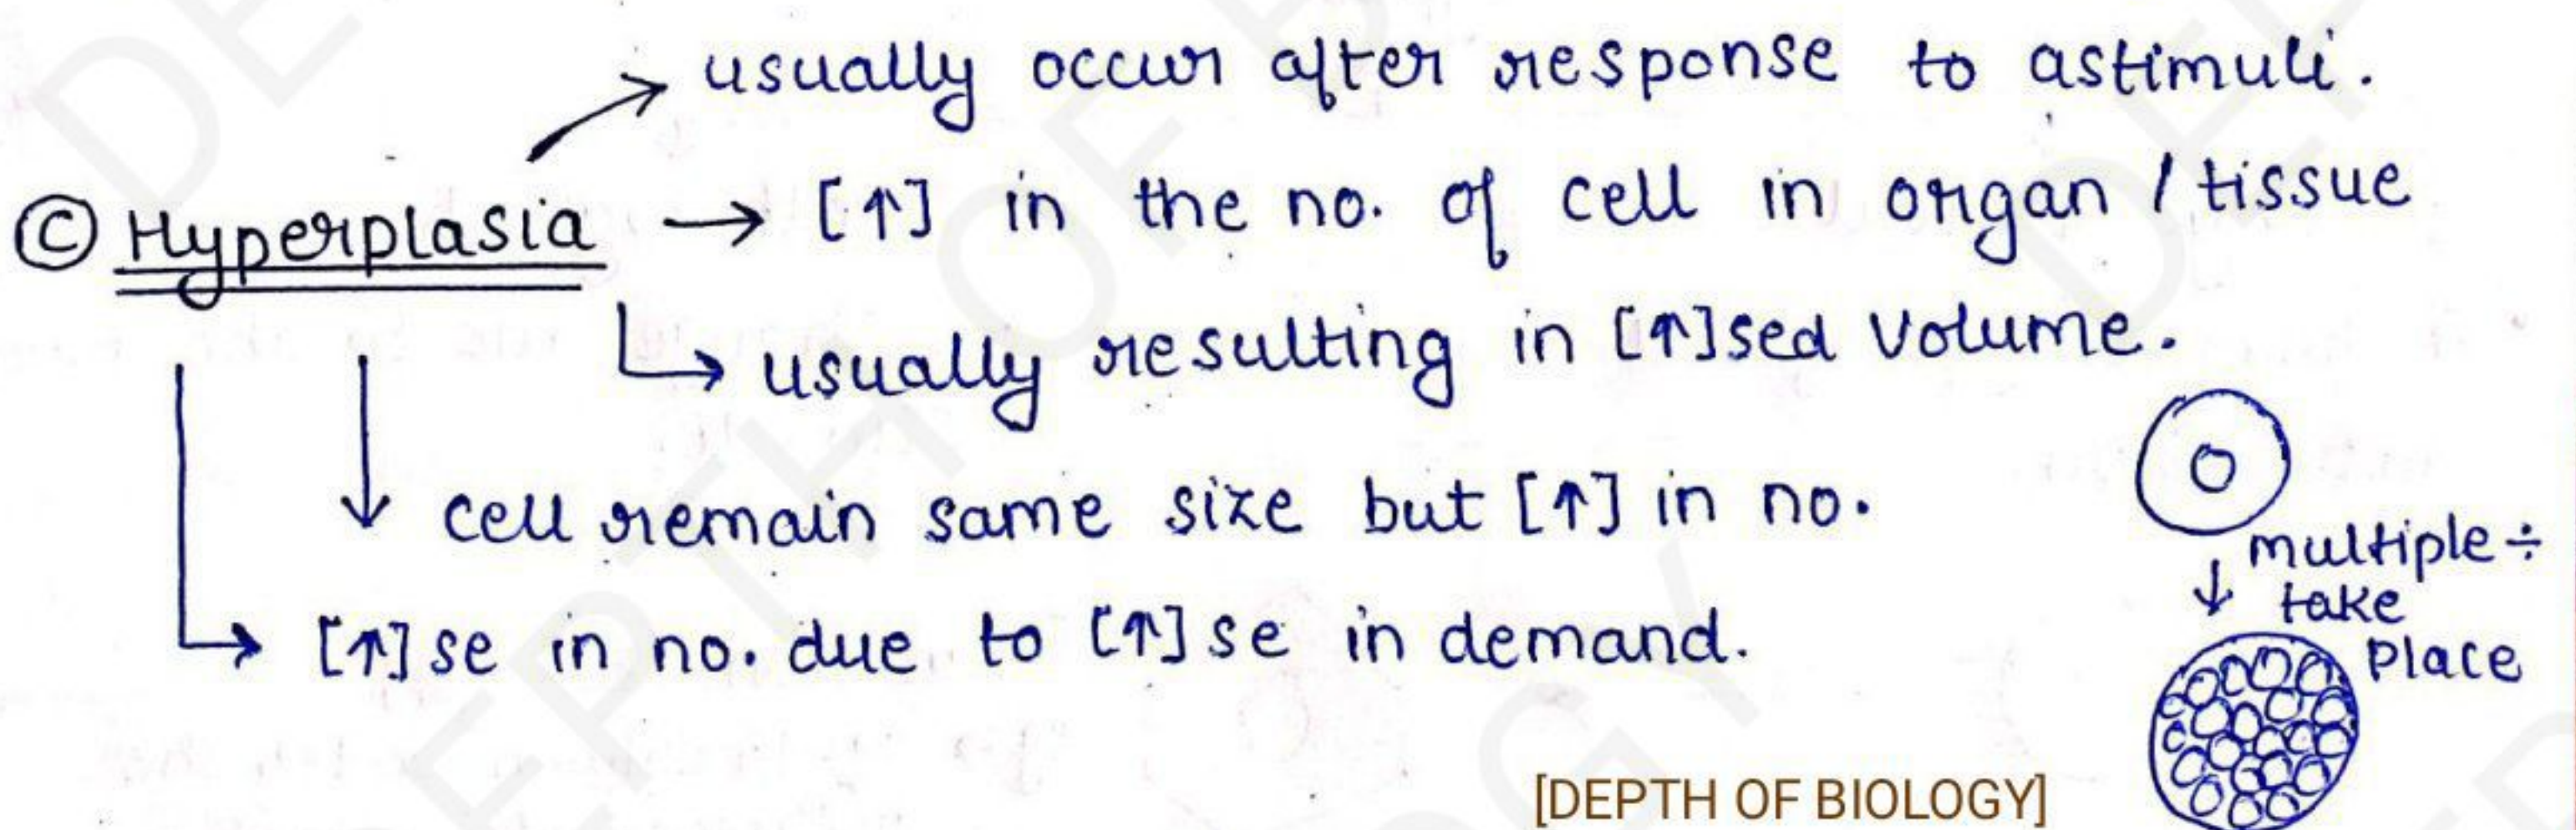 usually occur after response to astimuli.
Ⓒ Hyperplasia → [↑] in the no. of cell in organ / tissue
usually resulting in [↑]sed volume.
cell remain same size but [↑] in no.
multiple ÷
take
place
[↑]se in no. due to [↑]se in demand.
[DEPTH OF BIOLOGY]
DEPTH OF BIOLOGY